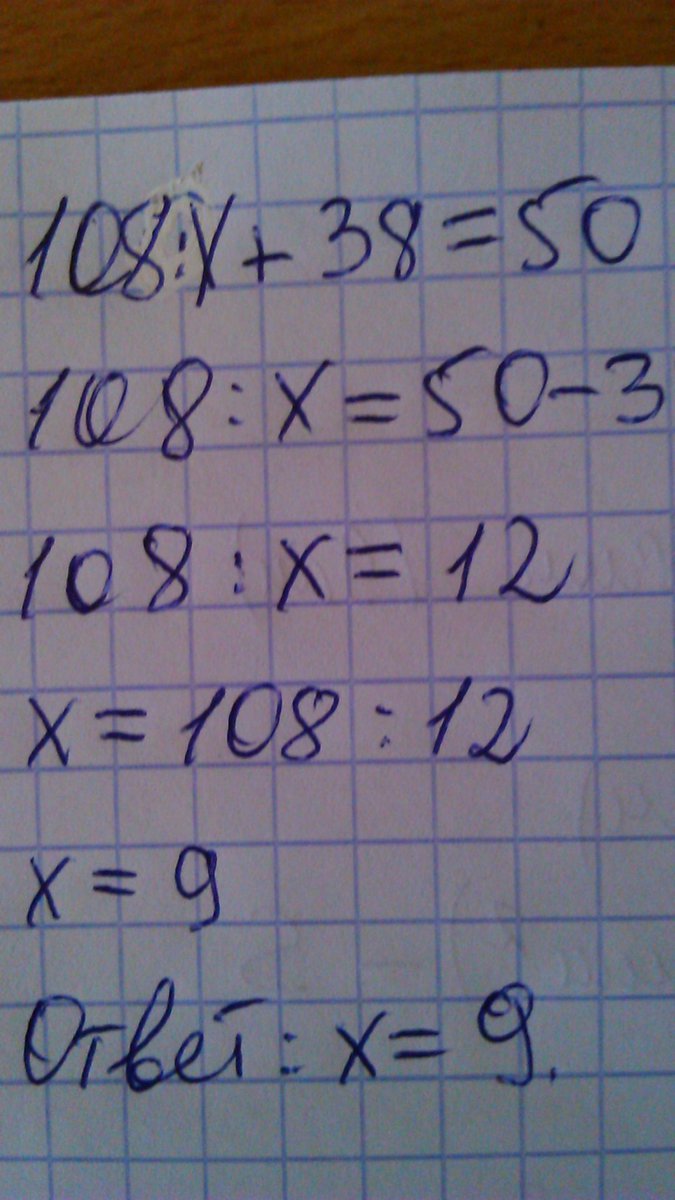 108:x+38=50
108:x=50-3
108:x=12
x=108:12
x=9
Ответ: x=9.